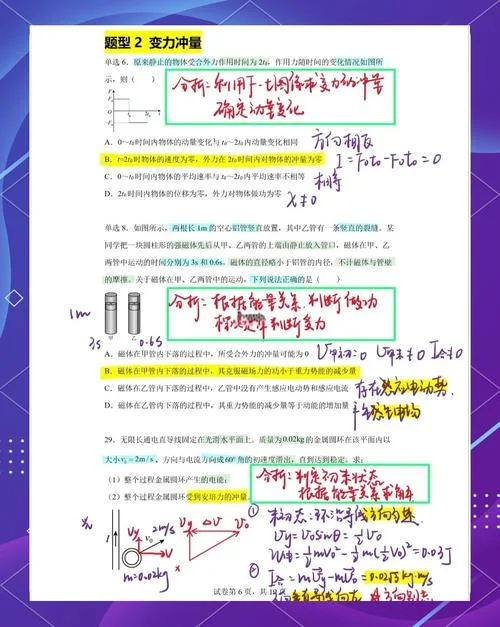 题型 2 变力冲量
单选 6. 原来静止的物体受合外力作用时间为 2t₀，作用力随时间的变化情况如图所
示，则（ ）
分析：利用F-t图像求变力的冲量
确定动量变化
F
F₀
t₀
2t₀
t
-F₀
A. 0～t₀时间内物体的动量变化与 t₀～2t₀内动量变化相同 方向相反
B. t=2t₀时物体的速度为零，外力在 2t₀时间内对物体的冲量为零 I=F₀t₀-F₀t₀=0
C. 0～t₀时间内物体的平均速率与 t₀～2t₀内平均速率不相等 相等
D. 2t₀时间内物体的位移为零，外力对物体做功为零 x≠0
单选 8. 如图所示，两根长 1m 的空心铝管竖直放置，其中乙管有一条竖直的裂缝。某
同学把一块圆柱形的强磁体先后从甲、乙两管的上端由静止放入管口，磁体在甲、乙
两管中运动的时间分别为 3s 和 0.6s。磁体的直径略小于铝管的内径，不计磁体与管壁
的摩擦。关于磁体在甲、乙两管中的运动，下列说法正确的是（ ）
分析：根据能量关系判断做功
1m
甲
乙
3s
0.6s
A. 磁体在甲管内下落的过程中，所受合外力的冲量可能为 0 V甲初=0 V甲末≠0 I合≠0
B. 磁体在甲管内下落的过程中，其克服磁场力的功小于重力势能的减少量
C. 磁体在乙管内下落的过程中，乙管中没有产生感应电动势和感应电流 存在感应电动势
D. 磁体在乙管内下落的过程中，其重力势能的减少量等于动能的增加量
29. 无限长通电直导线固定在光滑水平面上。质量为0.02kg的金属圆环在该平面内以
大小v₀=2m/s、方向与电流方向成60°角的初速度滑出，直到达到稳定。求：
（1）整个过程金属圆环产生的电能；
（2）整个过程金属圆环受到安培力的冲量。
分析：判定初末状态
根据能量关系求解
①
末状态：环沿导线方向匀速
I
Vy
2m/s
V₀
m=0.02kg
Vy
ΔV
V₀
②
试卷第 6 页，共